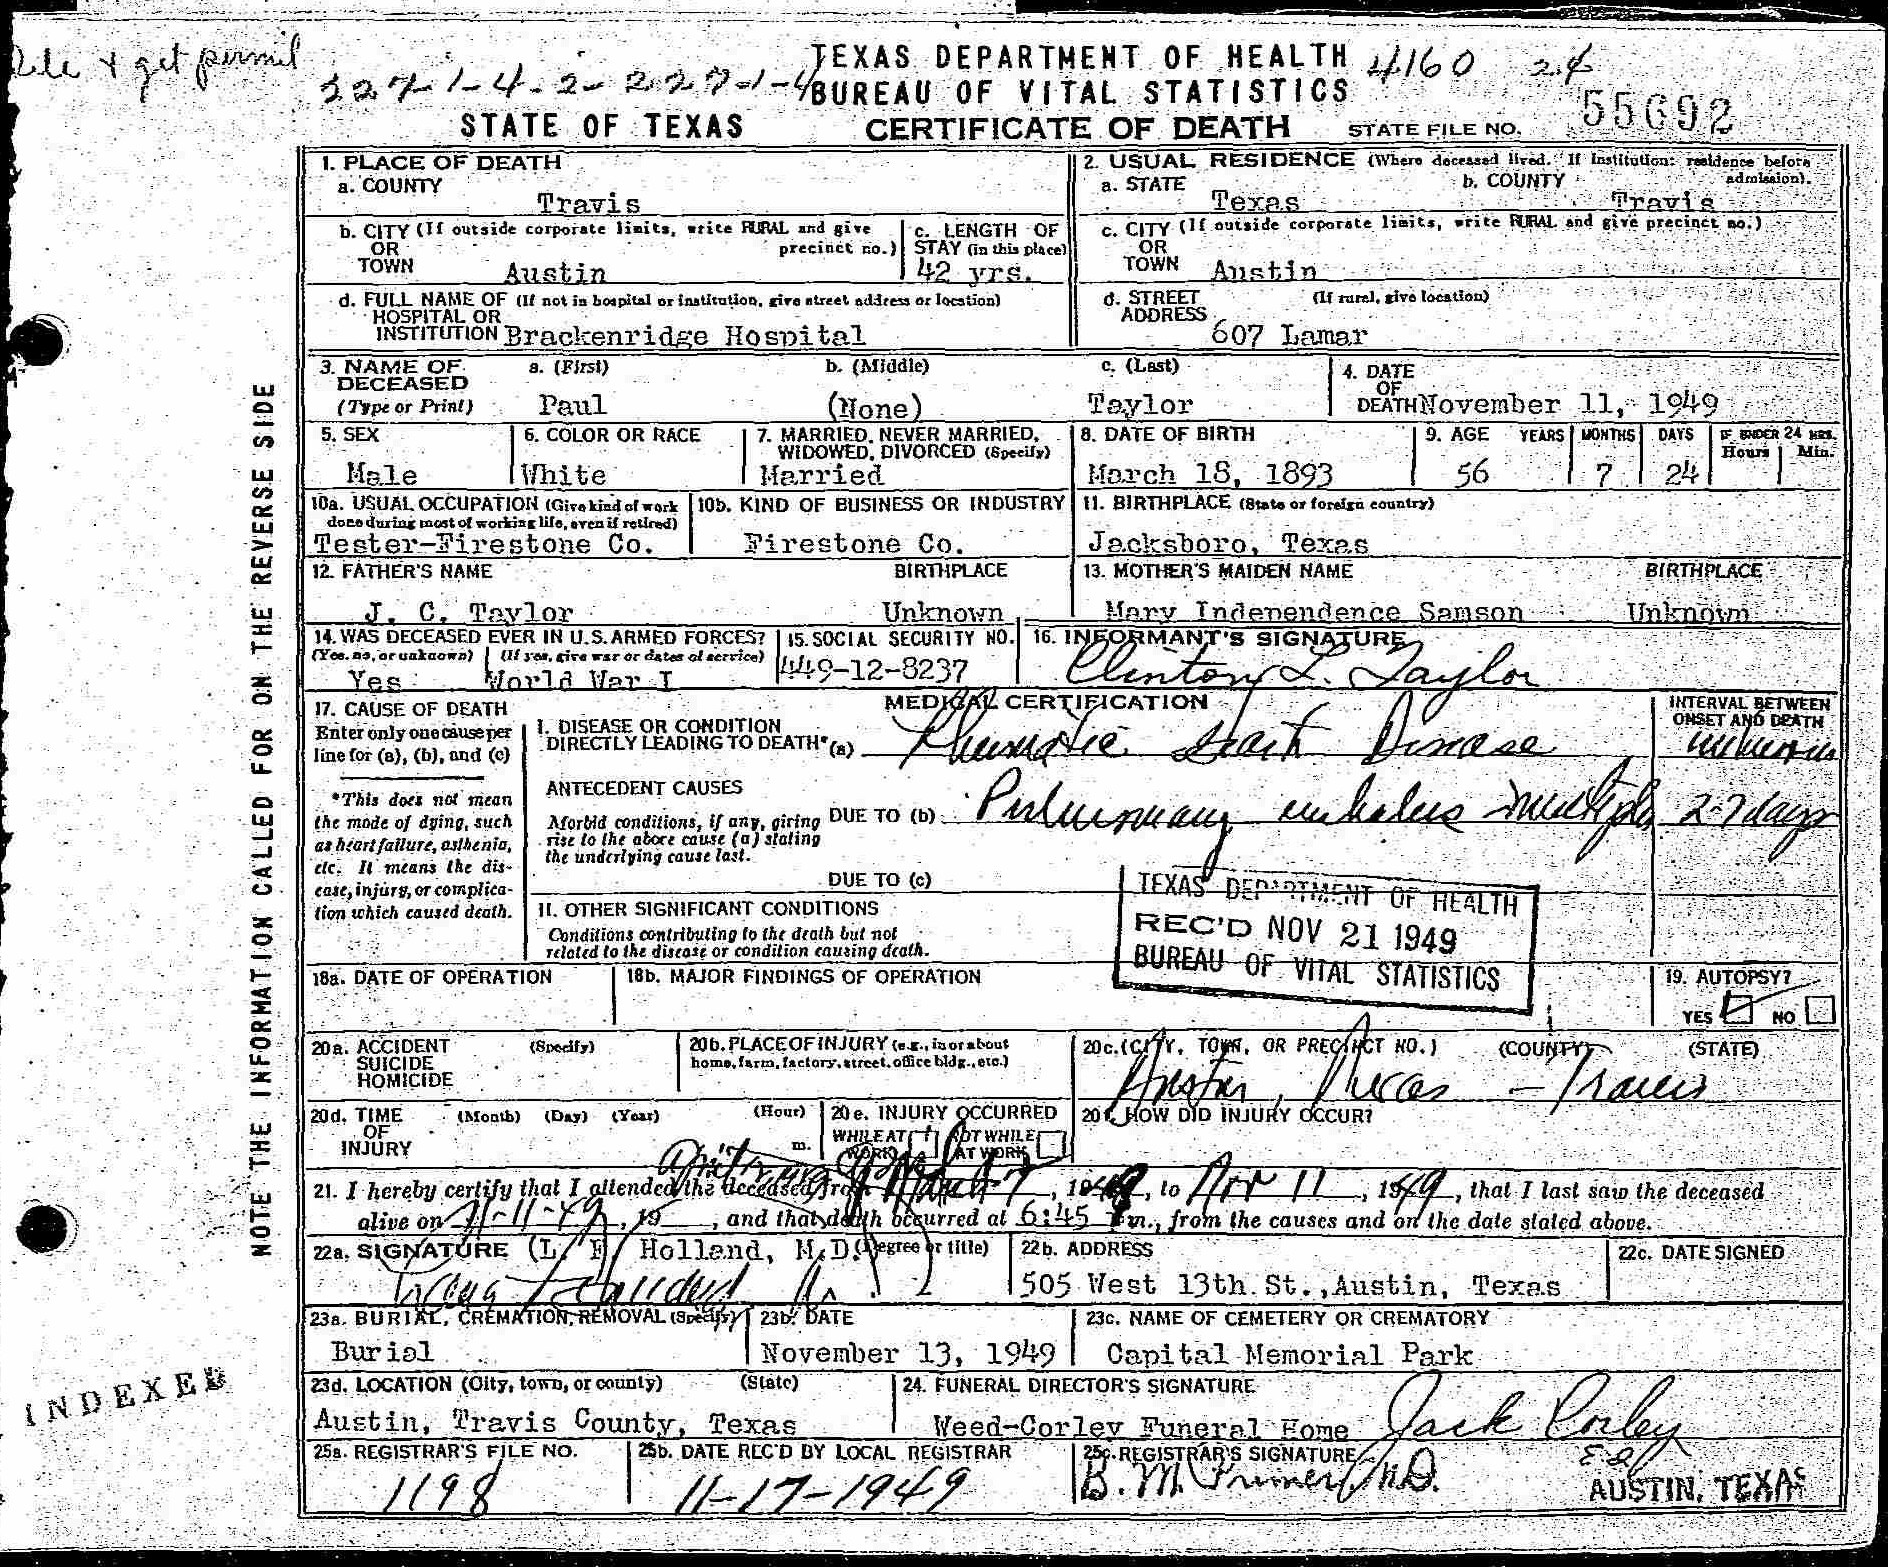 & get permit
227-1-4-2-227-1-4
TEXAS DEPARTMENT OF HEALTH
BUREAU OF VITAL STATISTICS
4160 24
STATE OF TEXAS
CERTIFICATE OF DEATH
STATE FILE NO. 55692
NOTE THE INFORMATION CALLED FOR ON THE REVERSE SIDE
1. PLACE OF DEATH
a. COUNTY
Travis
2. USUAL RESIDENCE (Where deceased lived. If institution: residence before admission).
a. STATE
Texas
b. COUNTY
Travis
b. CITY (If outside corporate limits, write RURAL and give
OR precinct no.)
TOWN Austin
c. LENGTH OF
STAY (in this place)
42 yrs.
c. CITY (If outside corporate limits, write RURAL and give precinct no.)
OR
TOWN Austin
d. FULL NAME OF (If not in hospital or institution, give street address or location)
HOSPITAL OR
INSTITUTION Brackenridge Hospital
d. STREET (If rural, give location)
ADDRESS
607 Lamar
3. NAME OF
DECEASED
(Type or Print)
a. (First)
Paul
b. (Middle)
(None)
c. (Last)
Taylor
4. DATE
OF
DEATH November 11, 1949
5. SEX
Male
6. COLOR OR RACE
White
7. MARRIED, NEVER MARRIED,
WIDOWED, DIVORCED (Specify)
Married
8. DATE OF BIRTH
March 18, 1893
9. AGE YEARS MONTHS DAYS IF UNDER 24 HRS.
Hours Min.
56 7 24
10a. USUAL OCCUPATION (Give kind of work
done during most of working life, even if retired)
Tester-Firestone Co.
10b. KIND OF BUSINESS OR INDUSTRY
Firestone Co.
11. BIRTHPLACE (State or foreign country)
Jacksboro, Texas
12. FATHER'S NAME BIRTHPLACE
J. C. Taylor Unknown
13. MOTHER'S MAIDEN NAME BIRTHPLACE
Mary Independence Samson Unknown
14. WAS DECEASED EVER IN U.S. ARMED FORCES?
(Yes, no, or unknown) (If yes, give war or dates of service)
Yes World War I
15. SOCIAL SECURITY NO.
449-12-8237
16. INFORMANT'S SIGNATURE
Clinton L. Taylor
MEDICAL CERTIFICATION
17. CAUSE OF DEATH
Enter only one cause per
line for (a), (b), and (c)
*This does not mean
the mode of dying, such
as heart failure, asthenia,
etc. It means the dis-
ease, injury, or complica-
tion which caused death.
I. DISEASE OR CONDITION
DIRECTLY LEADING TO DEATH* (a) Rheumatic Heart Disease
INTERVAL BETWEEN
ONSET AND DEATH
unknown
ANTECEDENT CAUSES
Morbid conditions, if any, giving
rise to the above cause (a) stating
the underlying cause last.
DUE TO (b) Pulmonary embolus multiple 2-7 days
DUE TO (c)
TEXAS DEPARTMENT OF HEALTH
REC'D NOV 21 1949
BUREAU OF VITAL STATISTICS
II. OTHER SIGNIFICANT CONDITIONS
Conditions contributing to the death but not
related to the disease or condition causing death.
18a. DATE OF OPERATION
18b. MAJOR FINDINGS OF OPERATION
19. AUTOPSY?
YES NO
20a. ACCIDENT (Specify)
SUICIDE
HOMICIDE
20b. PLACE OF INJURY (e.g., in or about
home, farm, factory, street, office bldg., etc.)
20c. (CITY, TOWN, OR PRECINCT NO.) (COUNTY) (STATE)
Austin, Texas - Travis
20d. TIME (Month) (Day) (Year) (Hour)
OF
INJURY m.
20e. INJURY OCCURRED
WHILE AT WORK NOT WHILE AT WORK
20f. HOW DID INJURY OCCUR?
21. I hereby certify that I attended the deceased from , 1949, to Nov 11, 1949, that I last saw the deceased
alive on 11-11-49, 19 , and that death occurred at 6:45 m., from the causes and on the date stated above.
22a. SIGNATURE (L F Holland, M.D.) (Degree or title)
22b. ADDRESS
505 West 13th St., Austin, Texas
22c. DATE SIGNED
23a. BURIAL, CREMATION, REMOVAL (Specify)
Burial
23b. DATE
November 13, 1949
23c. NAME OF CEMETERY OR CREMATORY
Capital Memorial Park
23d. LOCATION (City, town, or county) (State)
Austin, Travis County, Texas
24. FUNERAL DIRECTOR'S SIGNATURE
Weed-Corley Funeral Home Jack Corley
INDEXED
25a. REGISTRAR'S FILE NO.
1198
25b. DATE REC'D BY LOCAL REGISTRAR
11-17-1949
25c. REGISTRAR'S SIGNATURE
B. M. Primer, M.D.
AUSTIN, TEXAS